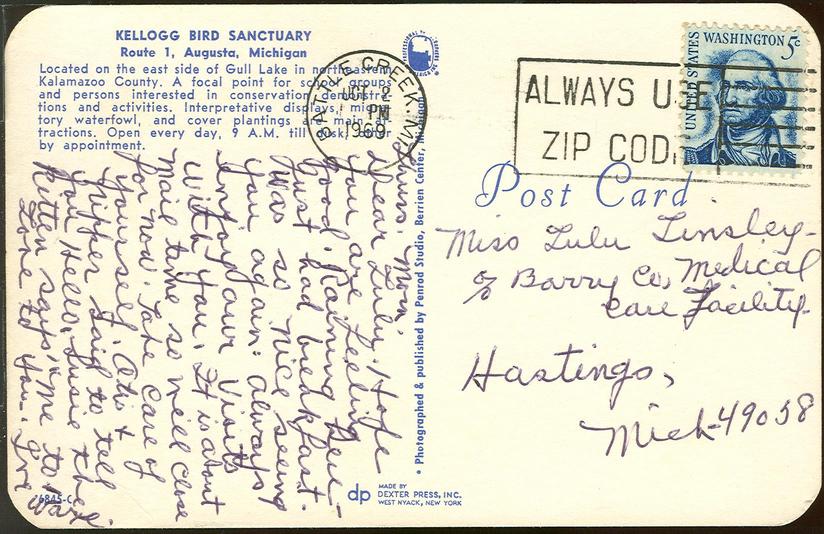 KELLOGG BIRD SANCTUARY
Route 1, Augusta, Michigan
Located on the east side of Gull Lake in northeastern
Kalamazoo County. A focal point for school groups
and persons interested in conservation demonstra-
tions and activities. Interpretive displays, migra-
tory waterfowl, and cover plantings are main at-
tractions. Open every day, 9 A.M. till dusk,
by appointment.
BATTLE CREEK, MI
OCT 2
PM
1969
ALWAYS USE
ZIP CODE
UNITED STATES
WASHINGTON 5c
Post Card
Miss Lulu Linsley
c/o Barry Co. Medical
Care Facility
Hastings,
Mich-49058
Thurs. Morn.
Dear Lulu, Hope
you are feeling
good. Raining here
Just had breakfast.
Was so nice seeing
you, again: always
enjoy our visits
with you. It is about
mail time so will close
for now. Take care of
yourself. Otis &
Skipper said to tell
you Hello, Susie the
Kitten says, "me to
Love to You
Photographed & published by Penrod Studio, Berrien Center, Michigan
dp
MADE BY
DEXTER PRESS, INC.
WEST NYACK, NEW YORK